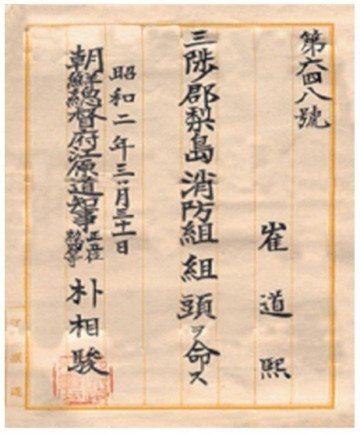 第六四八號
崔道熙
三陟郡梨島消防組組頭ヲ命ス
昭和二年三月三十一日
朝鮮總督府江原道知事正五位勲四等朴相駿